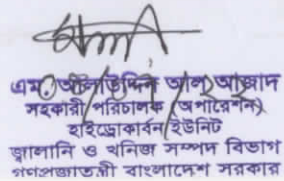 এম. আলাউদ্দিন আল আজাদ
সহকারী পরিচালক (অপারেশন)
হাইড্রোকার্বন ইউনিট
জ্বালানি ও খনিজ সম্পদ বিভাগ
গণপ্রজাতন্ত্রী বাংলাদেশ সরকার